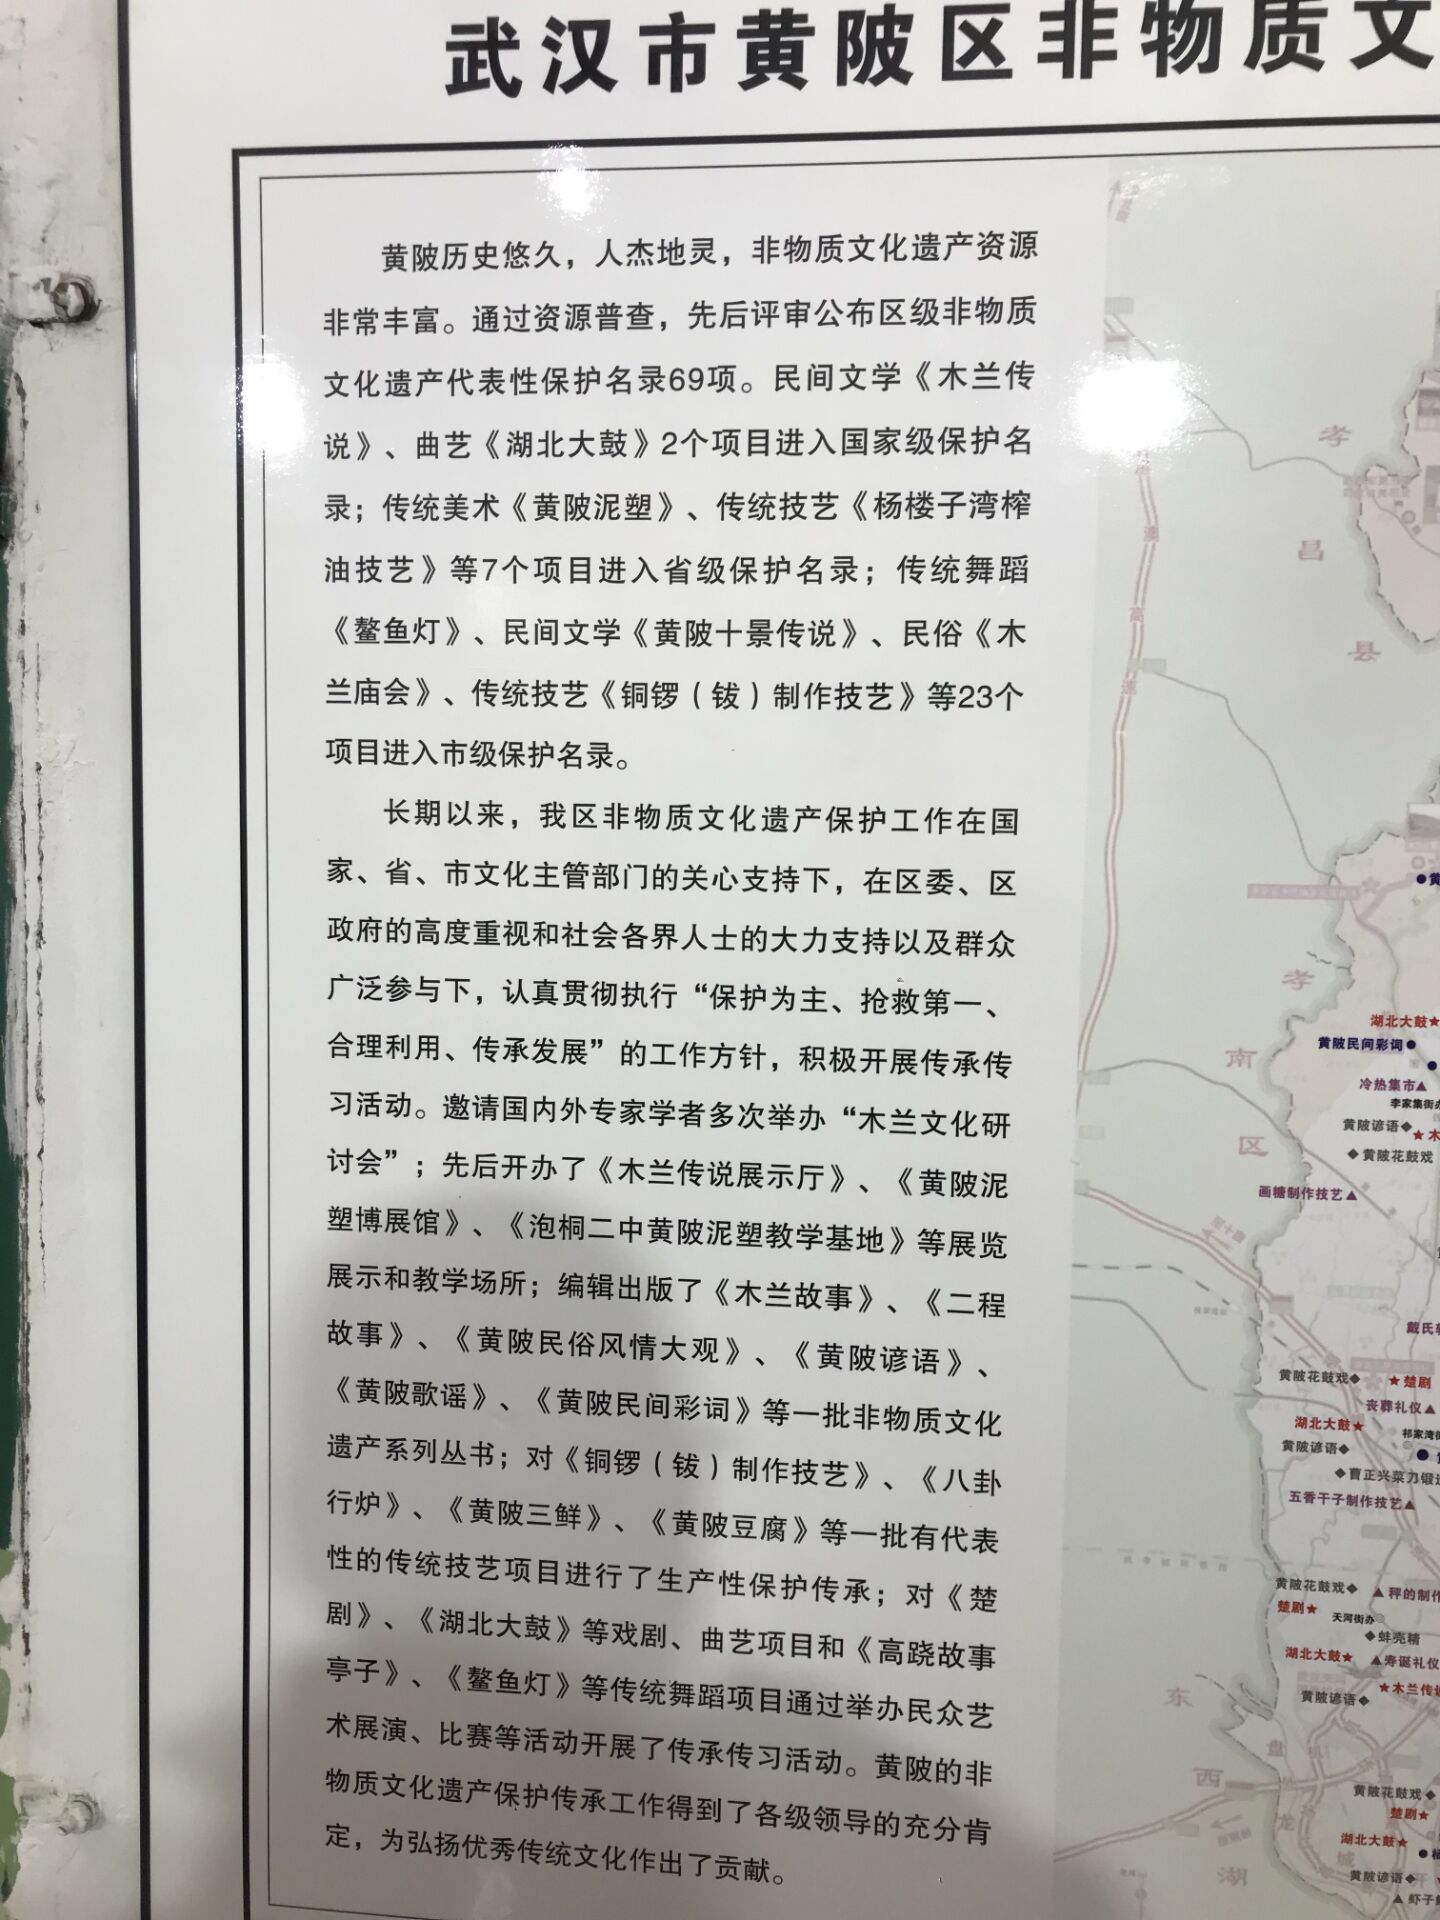 武汉市黄陂区非物质文
黄陂历史悠久，人杰地灵，非物质文化遗产资源
非常丰富。通过资源普查，先后评审公布区级非物质
文化遗产代表性保护名录69项。民间文学《木兰传
说》、曲艺《湖北大鼓》2个项目进入国家级保护名
录；传统美术《黄陂泥塑》、传统技艺《杨楼子湾榨
油技艺》等7个项目进入省级保护名录；传统舞蹈
《鳌鱼灯》、民间文学《黄陂十景传说》、民俗《木
兰庙会》、传统技艺《铜锣（钹）制作技艺》等23个
项目进入市级保护名录。
长期以来，我区非物质文化遗产保护工作在国
家、省、市文化主管部门的关心支持下，在区委、区
政府的高度重视和社会各界人士的大力支持以及群众
广泛参与下，认真贯彻执行“保护为主、抢救第一、
合理利用、传承发展”的工作方针，积极开展传承传
习活动。邀请国内外专家学者多次举办“木兰文化研
讨会”；先后开办了《木兰传说展示厅》、《黄陂泥
塑博展馆》、《泡桐二中黄陂泥塑教学基地》等展览
展示和教学场所；编辑出版了《木兰故事》、《二程
故事》、《黄陂民俗风情大观》、《黄陂谚语》、
《黄陂歌谣》、《黄陂民间彩词》等一批非物质文化
遗产系列丛书；对《铜锣（钹）制作技艺》、《八卦
行炉》、《黄陂三鲜》、《黄陂豆腐》等一批有代表
性的传统技艺项目进行了生产性保护传承；对《楚
剧》、《湖北大鼓》等戏剧、曲艺项目和《高跷故事
亭子》、《鳌鱼灯》等传统舞蹈项目通过举办民众艺
术展演、比赛等活动开展了传承传习活动。黄陂的非
物质文化遗产保护传承工作得到了各级领导的充分肯
定，为弘扬优秀传统文化作出了贡献。
孝
昌
县
澳
高
速
黄
孝
南
区
湖北大鼓
黄陂民间彩词
冷热集市
李家集街办
黄陂谚语
木
黄陂花鼓戏
画糖制作技艺
戴氏
黄陂花鼓戏
楚剧
丧葬礼仪
湖北大鼓
祁家湾街
黄陂谚语
曹正兴菜刀锻
五香干子制作技艺
黄陂花鼓戏
秤的制作
楚剧
天河街办
蚌壳精
湖北大鼓
寿诞礼仪
木兰传说
黄陂谚语
东
西
湖
黄陂花鼓戏
楚剧
湖北大鼓
黄陂谚语
虾子